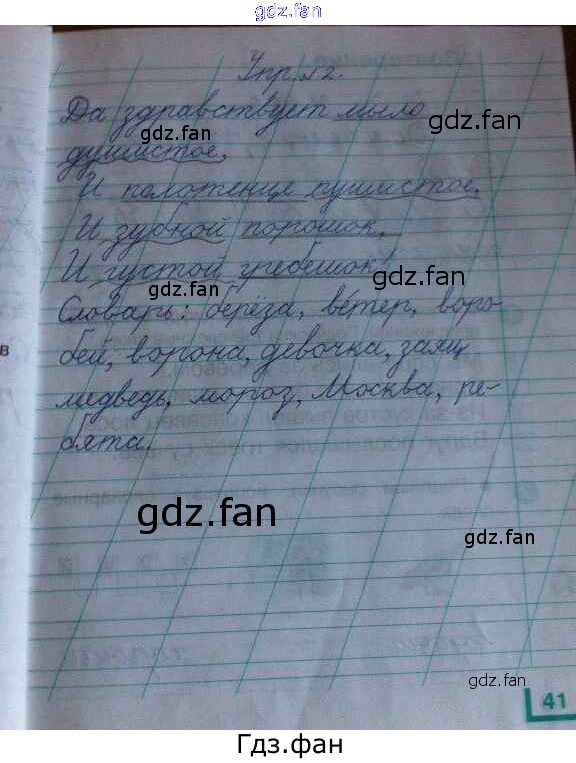 gdz.fan
Упр 12.
Да здравствует мыло
gdz.fan
gdz.fan
душистое,
И полотенце пушистое.
И зубной порошок,
И густой гребешок!
gdz.fan
gdz.fan
Словарь: берёза, ветер, воро-
в
бей, ворона, девочка, заяц
медведь, мороз, Москва, ре-
бята.
gdz.fan
gdz.fan
gdz.fan
gdz.fan
41
Гдз.фан